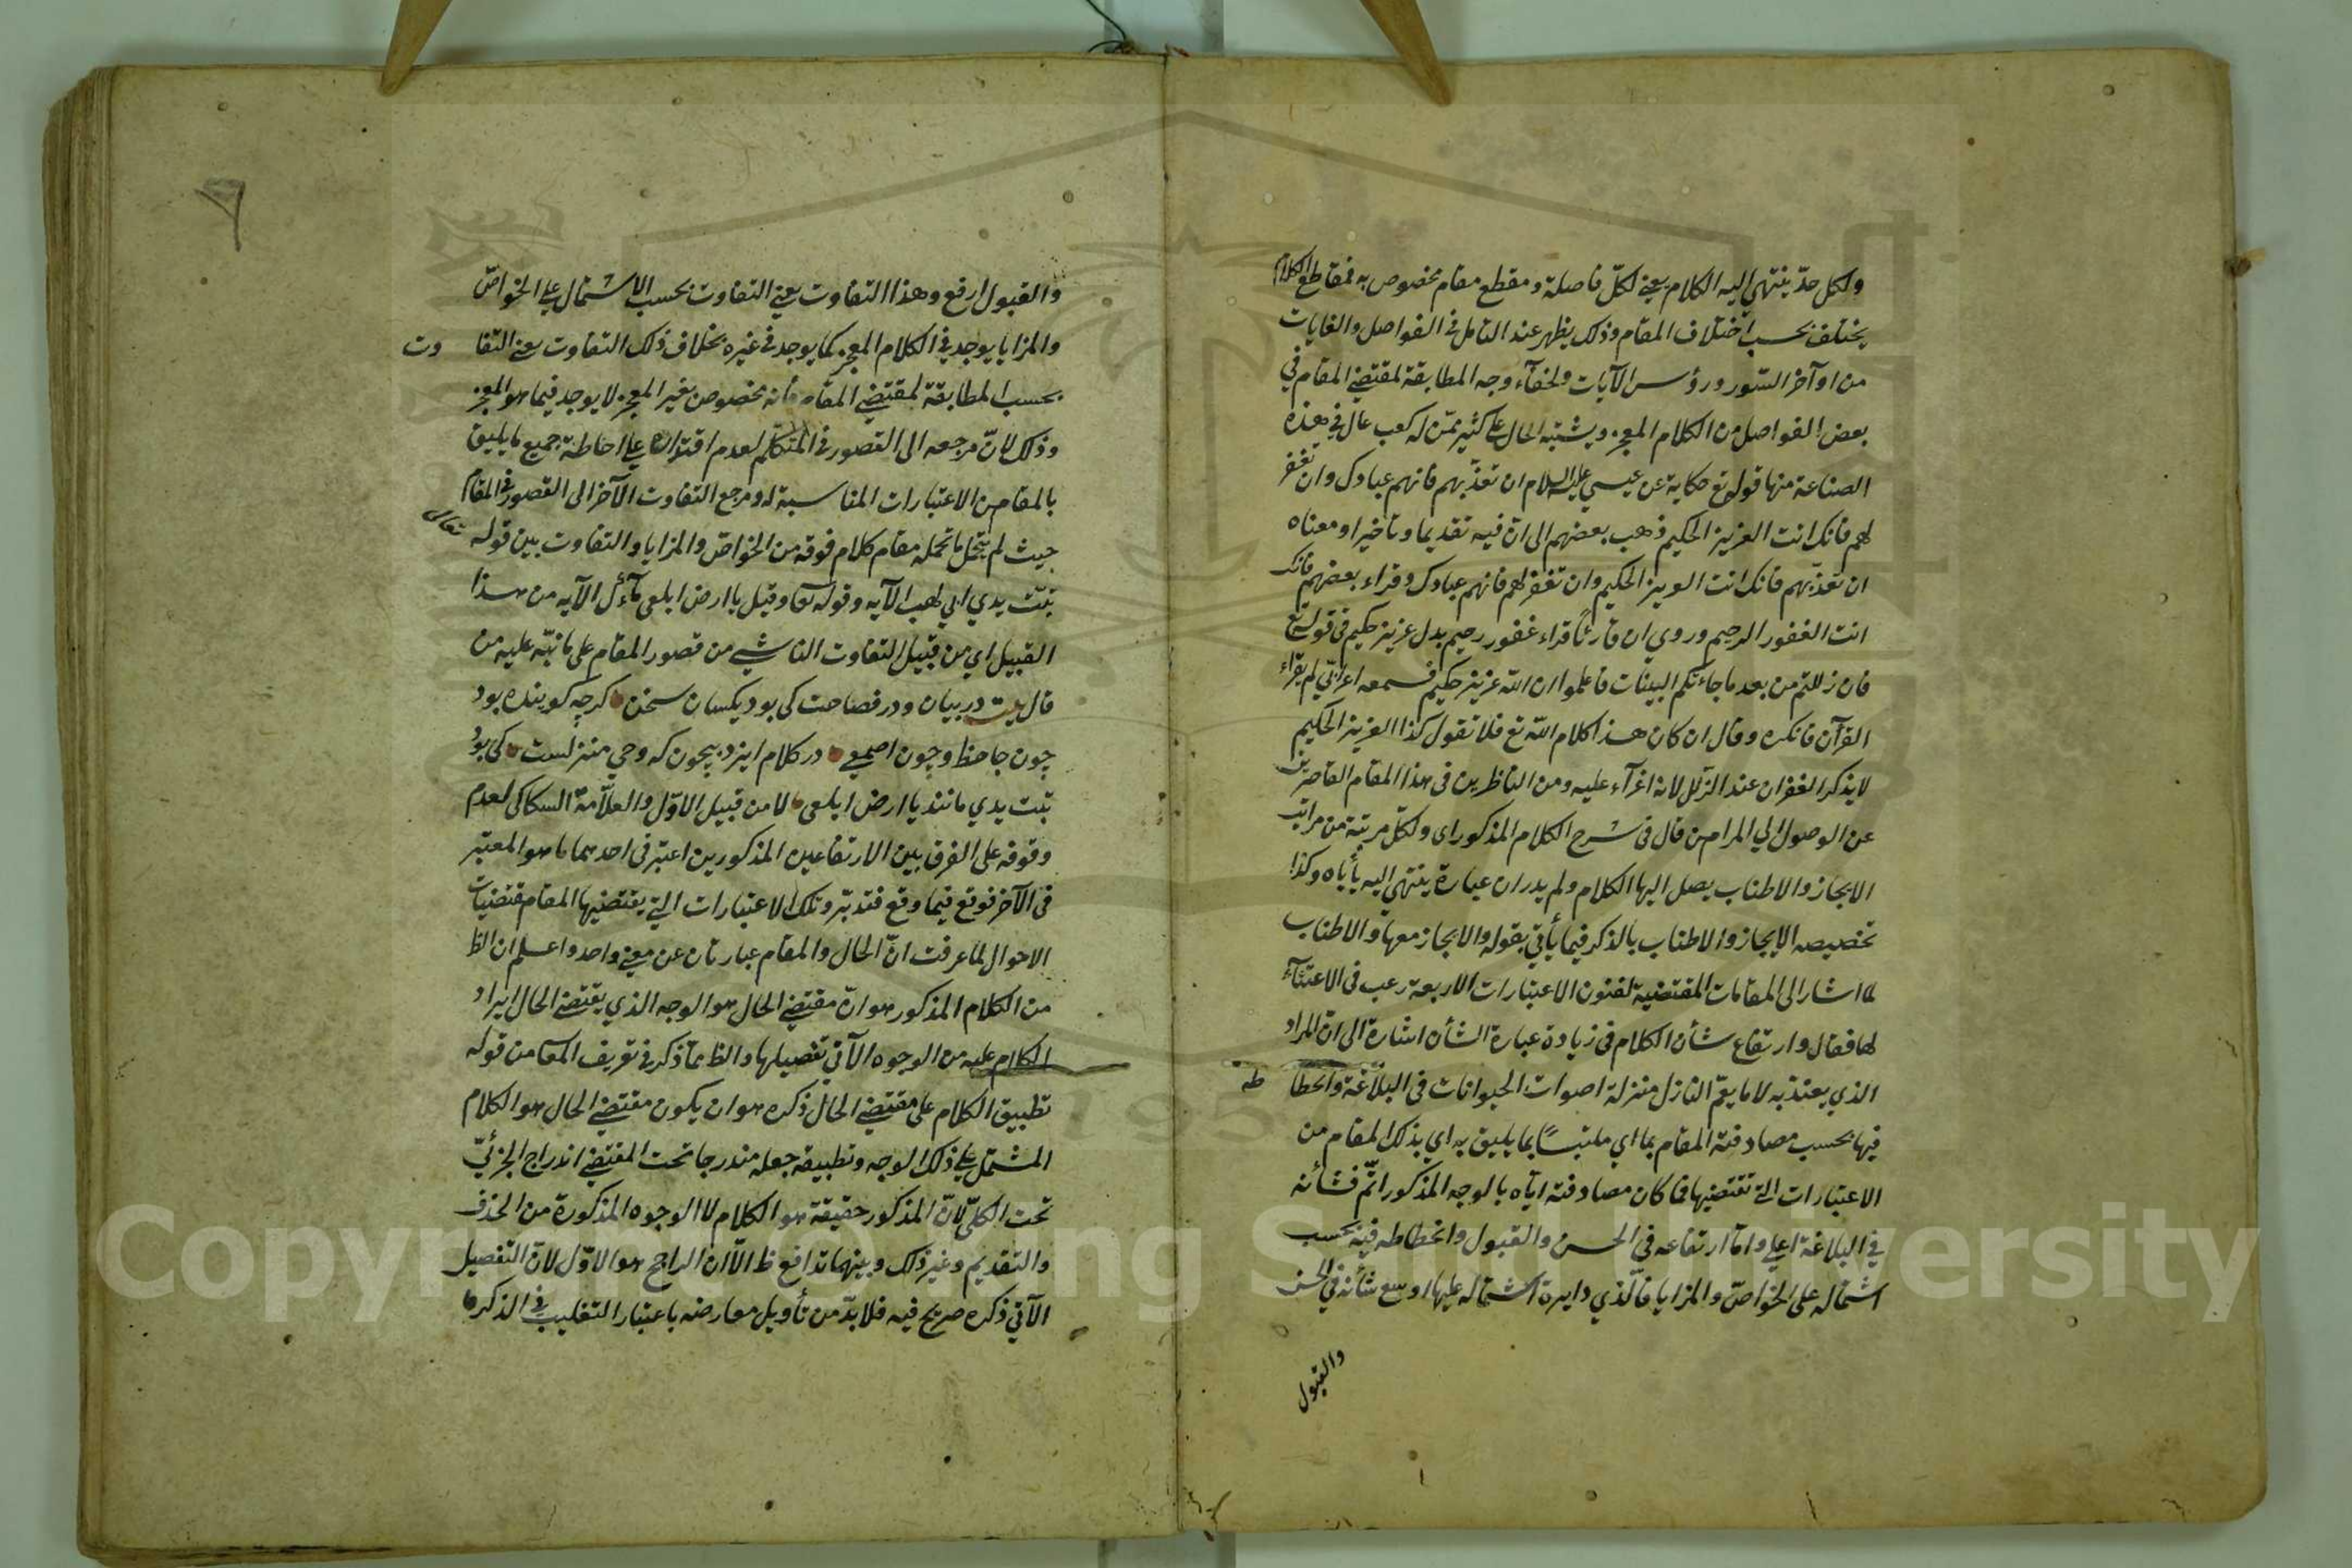 ولكل حدّ ينتهي اليه الكلام يعني لكلّ فاصلة ومقطع مقام مخصوص به فمقاطع الكلام
يختلف بحسب اختلاف المقام وذلك يظهر عند التامل في الفواصل والغايات
من اوآخر السّور ورؤس الآيات ولخفآء وجه المطابقة لمقتضي المقام في
بعض الفواصل من الكلام المعجز ويشتبه الحال علي كثير ممّن له كعب عال في هذه
الصناعة منها قوله تع حكاية عن عيسي عليه السلام ان تعذّبهم فانهم عبادك وان تغفر
لهم فانك انت العزيز الحكيم ذهب بعضهم الى ان فيه تقديما وتاخيرا ومعناه
ان تعذّبهم فانك انت العزيز الحكيم وان تغفر لهم فانهم عبادك وقراء بعضهم فانك
انت الغفور الرحيم وروي ان قارئا قراء غفور رحيم بدل عزيز حكيم في قوله تع
فان زللتم من بعد ما جاءتكم البينات فاعلموا ان الله عزيز حكيم فسمعه اعرابيّ لم يقراء
القرآن فانكره وقال ان كان هذا كلام الله تع فلا تقول كذا العزيز الحكيم
لا يذكر الغفران عند الزّلل لانه اغرآء عليه ومن الناظرين في هذا المقام القاصرين
عن الوصول الي المرام من قال في شرح الكلام المذكور اى ولكلّ مرتبة من مراتب
الايجاز والاطناب يصل اليها الكلام ولم يدر ان عبارة ينتهي اليه يأباه وكذا
تخصيصه الايجاز والاطناب بالذكر فيما يأتي بقوله والايجاز معها والاطناب
لما اشار الى المقامات المقتضية لفنون الاعتبارات الاربعة رغب في الاعتنآء
لها فقال وارتفاع شأن الكلام في زيادة عبارة الشأن اشارة الى ان المراد
الذي يعتدّ به لا ما يعمّ النازل منزلة اصوات الحيوانات في البلاغة وانحطا طه
فيها بحسب مصادفة المقام بما اي ملتبسًا بما يليق به اي بذلك المقام من
الاعتبارات التي تقتضيها فما كان مصادفته ايّاه بالوجه المذكور اتمّ فشأنه
في البلاغة اعلي وامّا ارتفاعه في الحسن والقبول وانحطاطه فيه بحسب
اشتماله على الخواصّ والمزايا فالّذي دايرة اشتماله عليها اوسع شأنه في الحسن
والقبول
والقبول ارفع وهذا التفاوت يعني التفاوت بحسب الاشتمال علي الخواصّ
والمزايا يوجد في الكلام المعجز كما يوجد في غيره بخلاف ذلك التفاوت يعني التفا وت
بحسب المطابقة لمقتضي المقام فانه مخصوص بغير المعجز لا يوجد فيما هو المعجز
وذلك لانّ مرجعه الى القصور في المتكلّم لعدم اقتداره علي احاطة جميع ما يليق
بالمقام من الاعتبارات المناسبة له ومرجع التفاوت الآخر الى القصور في المقام
حيث لم يتحمل ما تحمله مقام كلام فوقه من الخواصّ والمزايا والتفاوت بين قوله تعالى
تبّت يدي ابي لهب الآيه وقوله تعا وقيل يا ارض ابلعى مآءك الآيه من هذا
القبيل اي من قبيل التفاوت الناشي من قصور المقام على ما نبّه عليه من
قال بيت در بيان ودر فصاحت كى بود يكسان سخن كرچه كوينده بود
چون جاحظ وچون اصمعي در كلام ايزد بيچون كه وحي منزلست كى بود
تبّت يدي مانند يا ارض ابلعى لا من قبيل الاوّل والعلّامة السكاكى لعدم
وقوفه على الفرق بين الارتفاعين المذكورين اعتبر في احدهما ما هو المعتبر
فى الآخر فوقع فيما وقع فتدبّر وتلك الاعتبارات التي يقتضيها المقام مقتضيات
الاحوال لما عرفت انّ الحال والمقام عبارتان عن معني واحد واعلم ان الظ
من الكلام المذكور هو ان مقتضي الحال هو الوجه الذي يقتضي الحال ايراد
الكلام عليه من الوجوه الآتي تفصيلها والظ ممّا ذكر في تعريف المعا من قوله
تطبيق الكلام على مقتضي الحال ذكره هو ان يكون مقتضي الحال هو الكلام
المشتمل علي ذلك الوجه وتطبيقه جعله مندرجا تحت المقتضي اندراج الجزئيّ
تحت الكلّي لانّ المذكور حقيقة هو الكلام لا الوجوه المذكورة من الحذف
والتقديم وغير ذلك وبينهما تدافع ظ الّا ان الراجح هو الاوّل لان التفصيل
الآتي ذكره صريح فيه فلا بدّ من تأويل معارضه باعتبار التغليب في الذكر